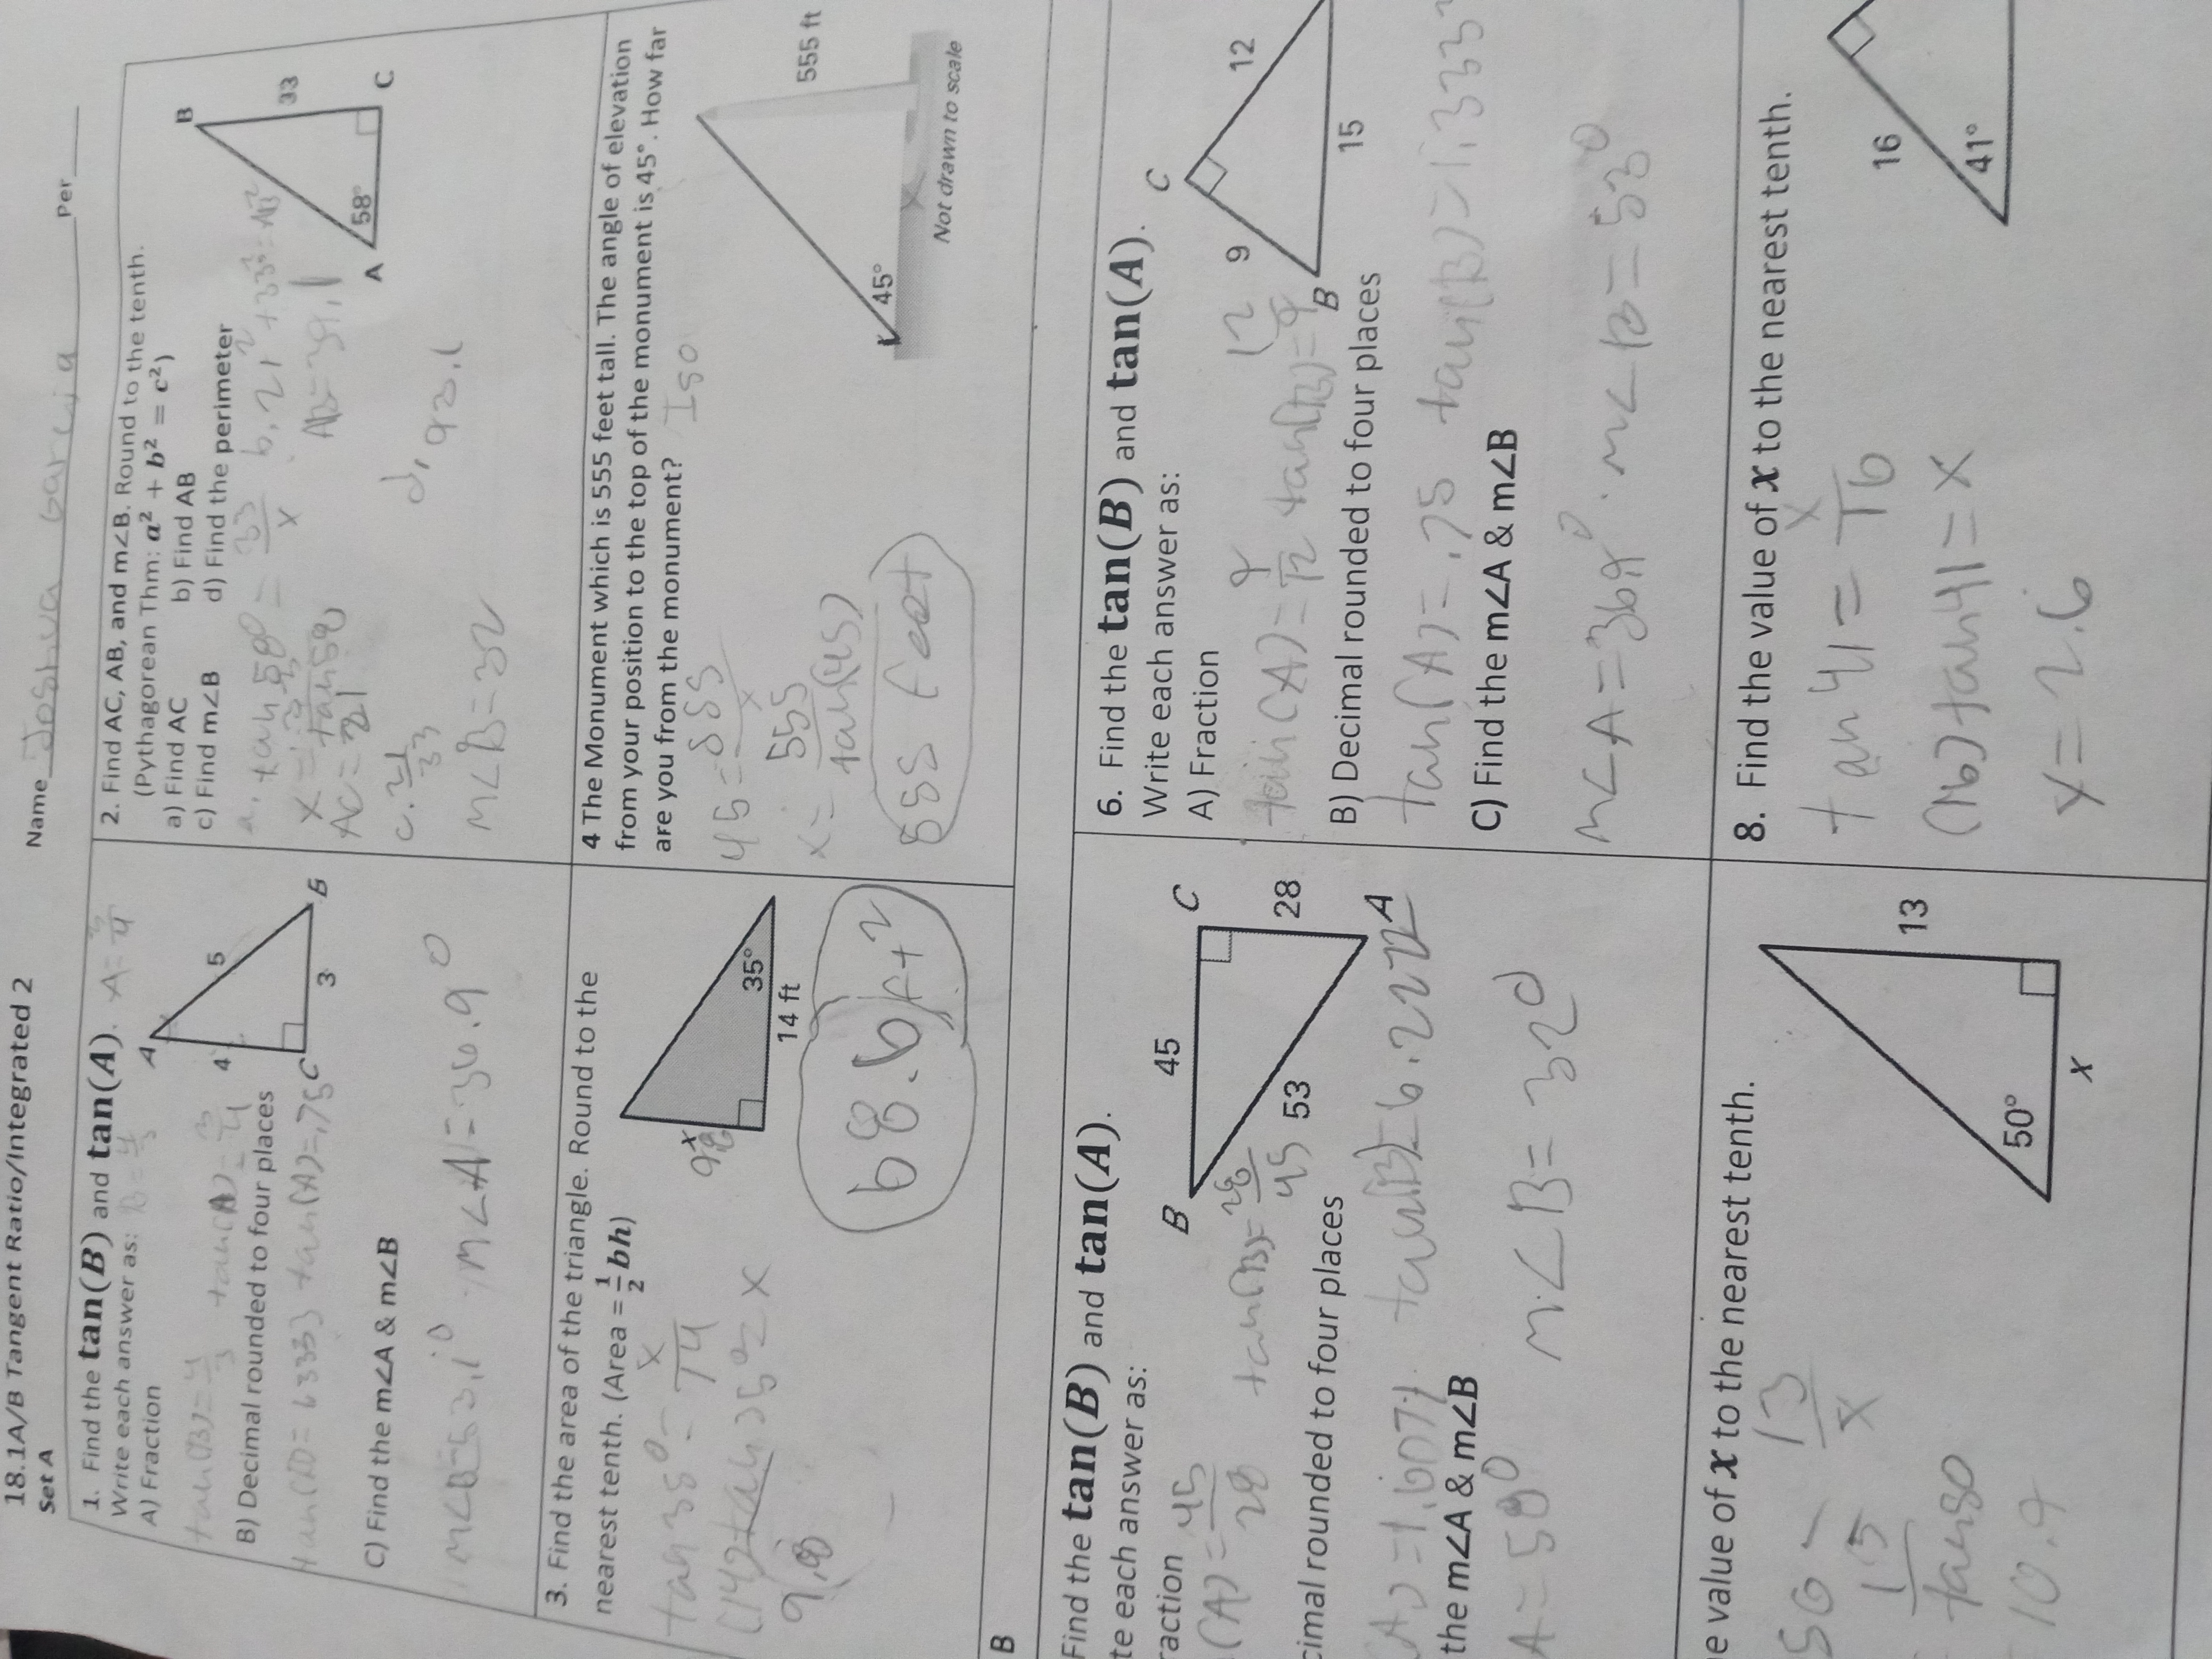 18.1A/B Tangent Ratio/Integrated 2
Set A
Name Joshua Garcia Per
1. Find the tan(B) and tan(A). A = 3/4
Write each answer as: B = 4/3
A) Fraction
tan(B) = 4/3 tan(A) = 3/4
B) Decimal rounded to four places
tan(A) = .75
C) Find the m∠A & m∠B
m∠B = 53.1° m∠A = 36.9°
A
4
5
C
3
B
2. Find AC, AB, and m∠B. Round to the tenth.
(Pythagorean Thm: a² + b² = c²)
a) Find AC b) Find AB
c) Find m∠B d) Find the perimeter
a. tan 58° = 33/x b. 21² + 33² = AB²
x = 33/tan 58
AB = 39.1
AC = 21
c. 21/33
d. 93.1
m∠B = 32
B
33
A 58° C
3. Find the area of the triangle. Round to the
nearest tenth. (Area = 1/2 bh)
tan 35° = x/14
(14) tan 35° = x
9.8
x
9.8
35°
14 ft
68.6 ft²
4 The Monument which is 555 feet tall. The angle of elevation
from your position to the top of the monument is 45°. How far
are you from the monument? Iso
45 = 555/x
x = 555/tan(45)
555 feet
555 ft
45°
x
Not drawn to scale
B
Find the tan(B) and tan(A).
te each answer as:
raction
(A) = 45/28 tan(B) = 28/45
cimal rounded to four places
(A) = 1.6071 tan(B) = 6.2222
the m∠A & m∠B
A = 58° m∠B = 32°
B
45
C
53
28
A
6. Find the tan(B) and tan(A).
Write each answer as:
A) Fraction
tan(A) = 9/12 tan(B) = 12/9
B) Decimal rounded to four places
tan(A) = .75 tan(B) = 1.333
C) Find the m∠A & m∠B
m∠A = 36.9° m∠B = 53°
C
9
12
B
15
e value of x to the nearest tenth.
50 = 13/x
13
tan50
10.9
13
50°
x
8. Find the value of x to the nearest tenth.
tan 41 = x/16
(16) tan 41 = x
y = 2.6
16
41°